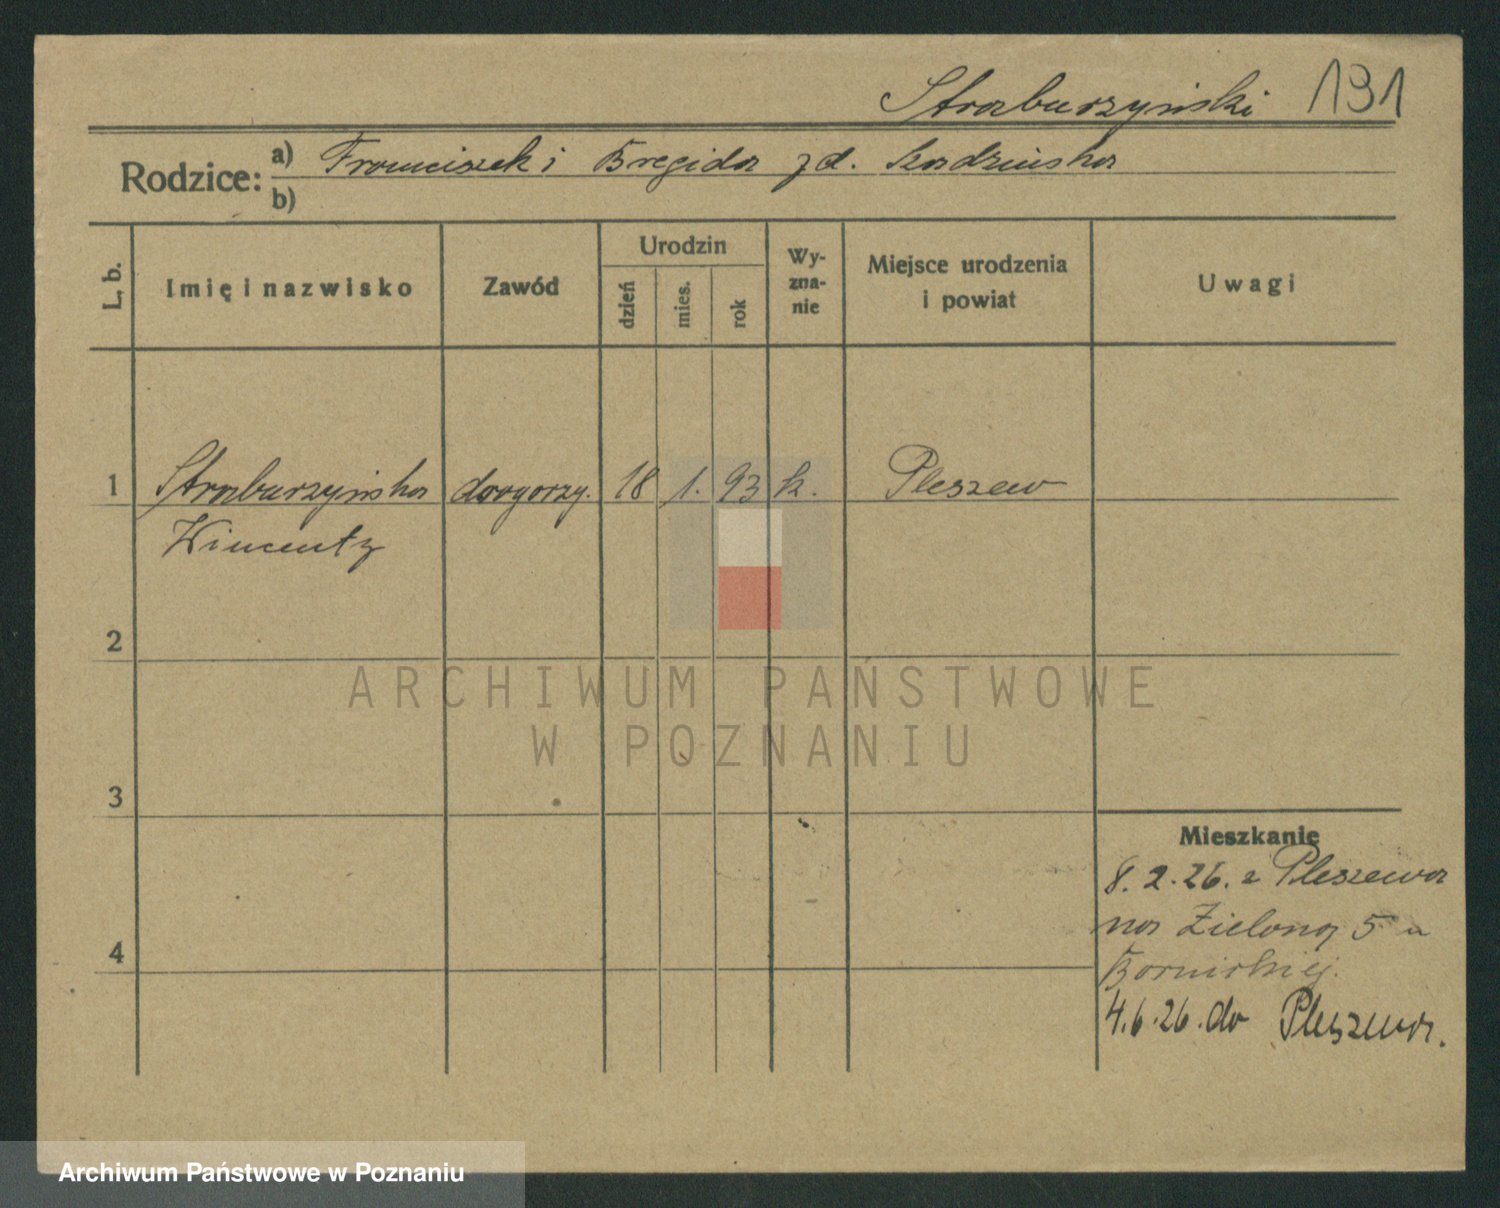 Straburzyński 191
Rodzice: a) Franciszek i Bregida zd. Szadzińska
b)
L, b. Imię i nazwisko Zawód Urodzin dzień mies. rok Wy-zna-nie Miejsce urodzenia i powiat Uwagi
1 Straburzyńska 18 1. 93 k. Pleszew
Wincenty
2
3
4
Mieszkanie
8. 2. 26. z Pleszewa
na Zieloną 5 u
4. 6. 26. do Pleszewa.
ARCHIWUM PAŃSTWOWE
W POZNANIU
Archiwum Państwowe w Poznaniu